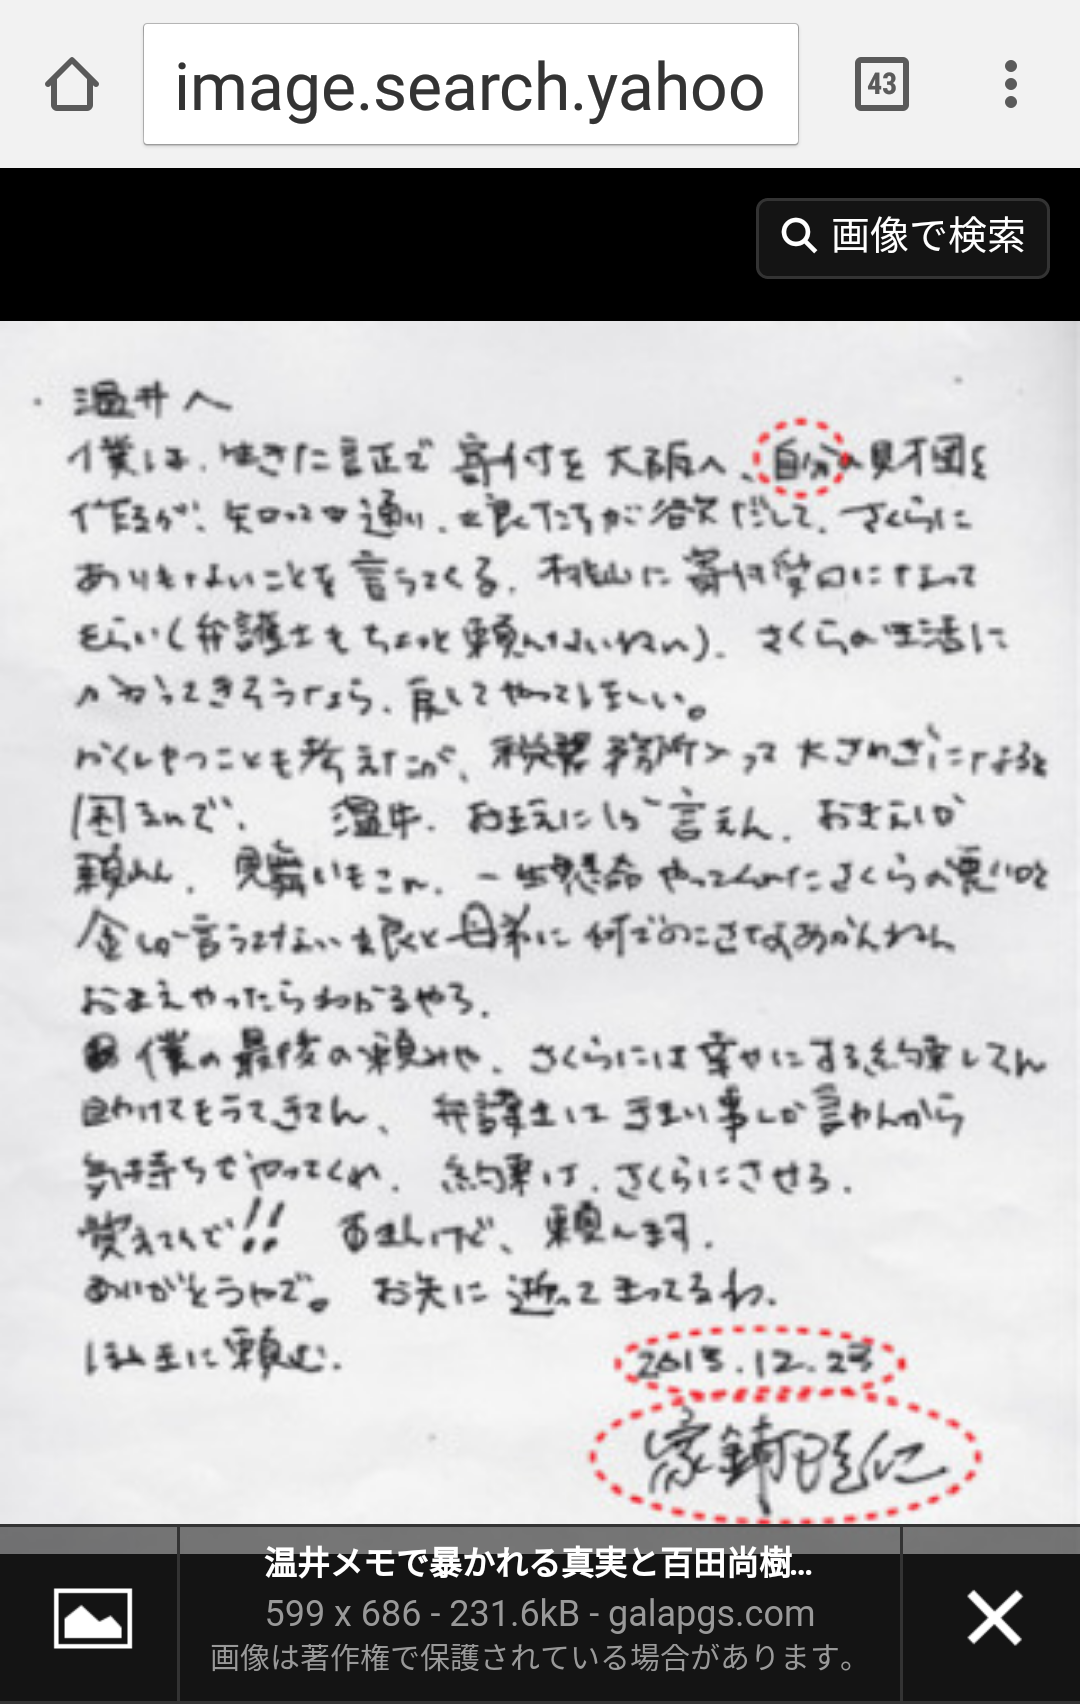 image.search.yahoo
43
画像で検索
温井へ
僕は、生きた証正で寄付を大阪へ、自分の財団を
作るが、知っての通り、娘たちが欲だして、さくらに
ありもしないことを言うてくる、桃山に寄付受口になって
もらい(弁護士もちょっと頼んないねん)、さくらの生活に
が わってきそうなら、戻してやってほしい。
かくしもつことも考えたが、税 務所入って大さわぎになると
困るんで、温井、おまえにしか言えん、おまえしか
頼れん、見舞いもこん、一生懸命やってくれたさくらの悪口と
金しか言うてけえへん娘と母弟に何でのこさなあかんねん
おまえやったらわかるやろ、
僕の最後の頼みや、さくらには幸せにする約束してん
助けてもうてきてん、弁護士はうまい事しか言わんから
気持ちでやってくれ、約束は、さくらにさせる。
覚えてんで!! 頼んます。
ありがとうやで。お先に逝って まってるわ、
ほんまに頼む。
2013.12.23
家鋪隆仁
温井メモで暴かれる真実と百田尚樹...
599 x 686 - 231.6kB - galapgs.com
画像は著作権で保護されている場合があります。